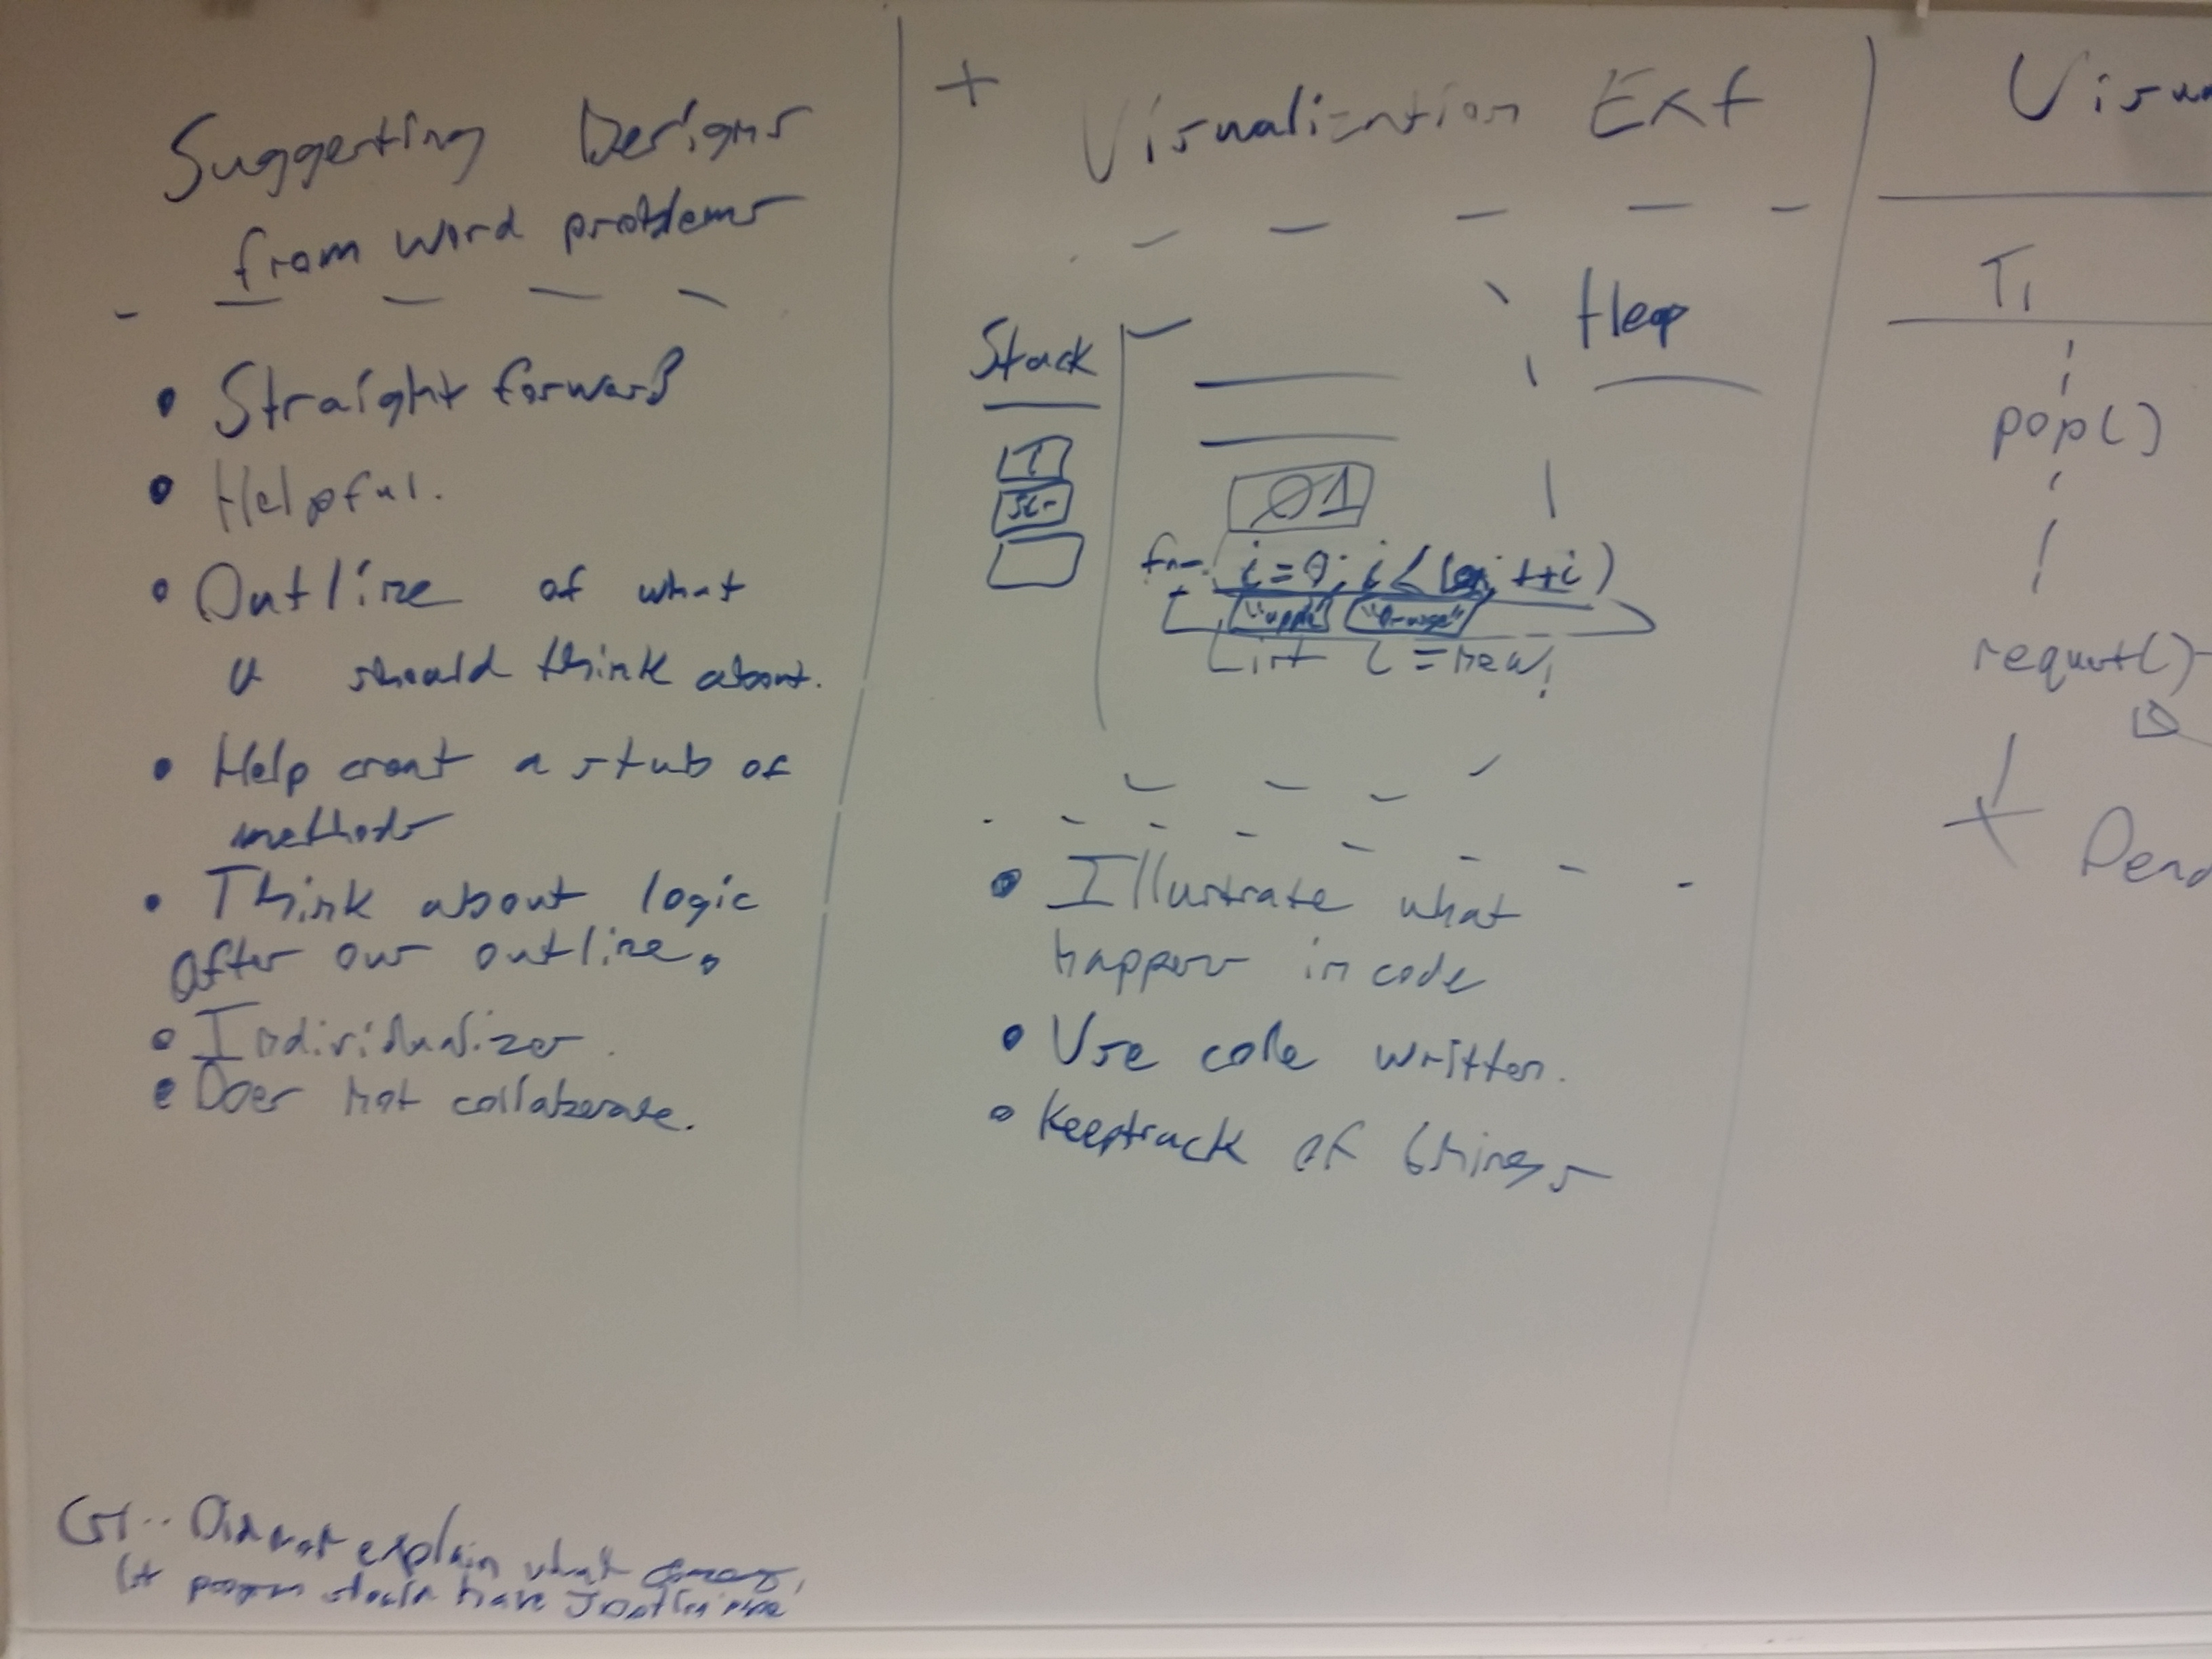 Suggesting Designs
from word problems
• Straight forward
• Helpful.
• Outline of what
u should think about.
• Help creat a stub of
methods
• Think about logic
after our outline.
• Individualizes.
• Does not collaberate.
Did not explain what
should have
+ Visualization Ext
Stack
Heap
01
for i=0; i<len; ++i)
"apple" "Orange"
List l = new;
• Illustrate what
happens in code
• Use code written.
• Keep track of things
T1
pop()
request()